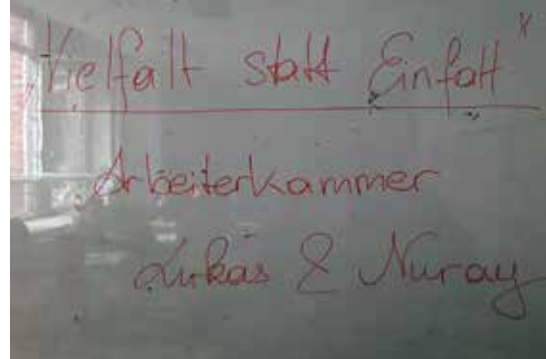 Vielfalt statt Einfalt
Arbeiterkammer
Lukas & Nuray